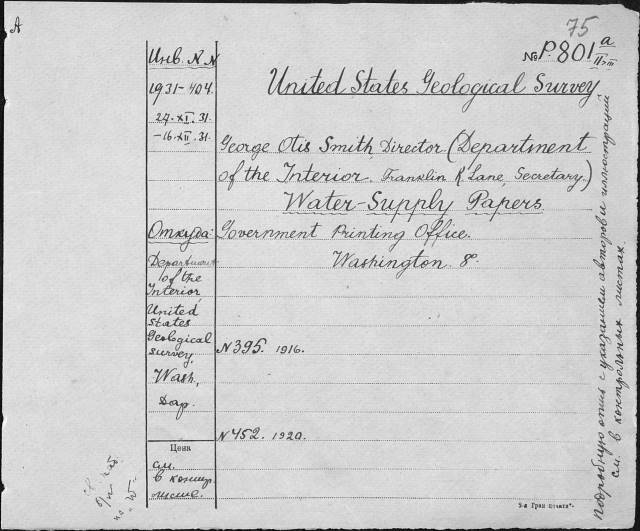 А
75
№ P.801 a
II-III
United States Geological Survey
George Otis Smith, Director (Department
of the Interior. Franklin K. Lane, Secretary.)
Water-Supply Papers
Government Printing Office.
Washington. 8°
N 395. 1916.
N 452. 1920.
Инв. N.N
1931-404.
27.XI.31.
-16.XII.31.
Откуда:
Department
of the
Interior,
United
States
Geological
survey,
Wash.
Дар.
Цена
см.
в контр.
листе.
подробную опись с указанием авторов и иллюстраций
см. в контрольных листах.